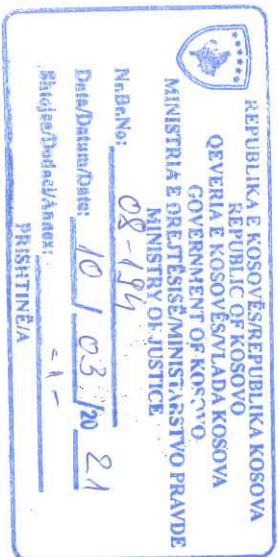 REPUBLIKA E KOSOVËS/REPUBLIKA KOSOVA
REPUBLIC OF KOSOVO
QEVERIA E KOSOVËS/VLADA KOSOVA
GOVERNMENT OF KOSOVO
MINISTRIA E DREJTËSISË/MINISTARSTVO PRAVDE
MINISTRY OF JUSTICE
Nr.Br.No: 08-194
Data/Datum/Date: 10 / 03 / 20 21
Shtojca/Dodaci/Annex: -1-
PRISHTINË/A